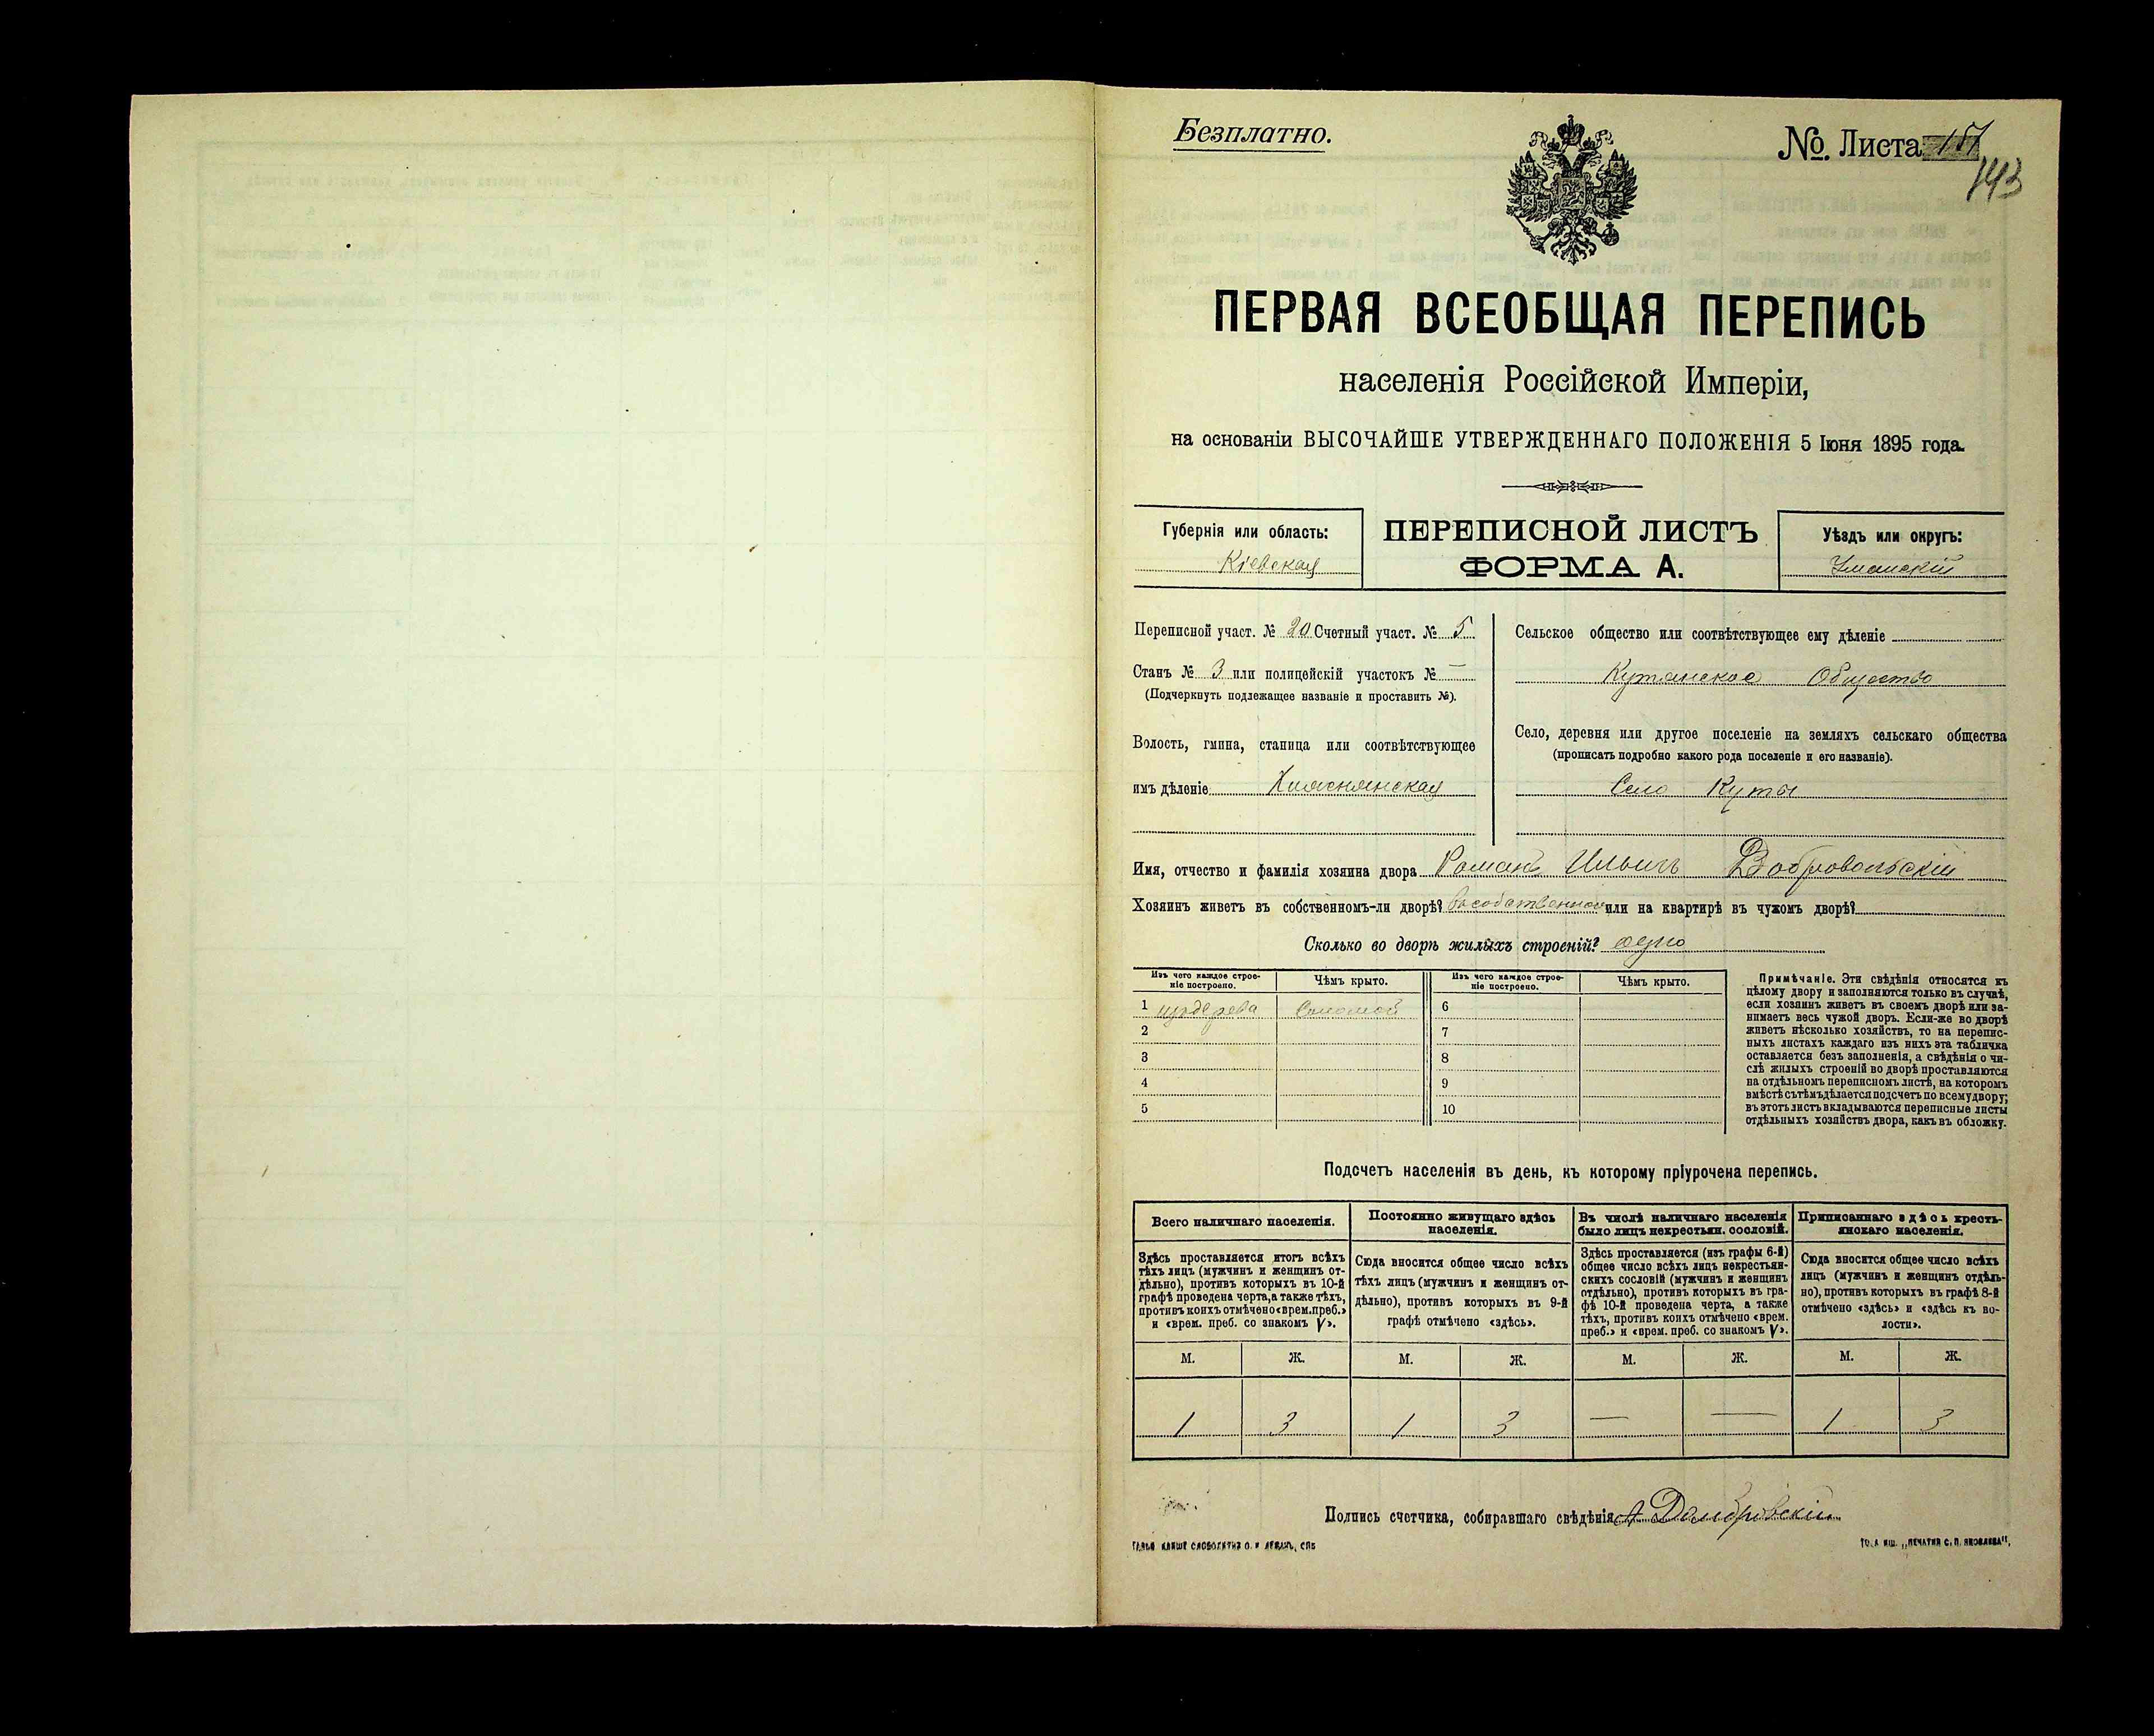 Безплатно.
№. Листа 151
143
ПЕРВАЯ ВСЕОБЩАЯ ПЕРЕПИСЬ
населенія Россійской Имперіи,
на основаніи ВЫСОЧАЙШЕ УТВЕРЖДЕННАГО ПОЛОЖЕНІЯ 5 Іюня 1895 года.
Губернія или область:
Кіевская
ПЕРЕПИСНОЙ ЛИСТЪ
ФОРМА А.
Уѣздъ или округъ:
Уманскій
Переписной участ. № 20 Счетный участ. № 5
Станъ № 3 или полицейскій участокъ № —
(Подчеркнуть подлежащее названіе и проставить №).
Волость, гмина, станица или соотвѣтствующее
имъ дѣленіе
Сельское общество или соотвѣтствующее ему дѣленіе
Кутянское Общество
Село, деревня или другое поселеніе на земляхъ сельскаго общества
(прописать подробно какого рода поселеніе и его названіе).
Село Куты
Имя, отчество и фамилія хозяина двора Романъ Ильичъ Добровольскій
Хозяинъ живетъ въ собственномъ-ли дворѣ? или на квартирѣ въ чужомъ дворѣ?
Сколько во дворѣ жилыхъ строеній? одно
Изъ чего каждое строе-
ніе построено.
Чѣмъ крыто.
Изъ чего каждое строе-
ніе построено.
Чѣмъ крыто.
1 изъ дерева Соломой 6
2 7
3 8
4 9
5 10
Примѣчаніе. Эти свѣдѣнія относятся къ
цѣлому двору и заполняются только въ случаѣ,
если хозяинъ живетъ въ своемъ дворѣ или за-
нимаетъ весь чужой дворъ. Если-же во дворѣ
живетъ нѣсколько хозяйствъ, то на перепис-
ныхъ листахъ каждаго изъ нихъ эта табличка
оставляется безъ заполненія, а свѣдѣнія о чи-
слѣ жилыхъ строеній во дворѣ проставляются
на отдѣльномъ переписномъ листѣ, на которомъ
вмѣстѣ съ тѣмъ дѣлается подсчетъ по всему двору;
въ этотъ листъ вкладываются переписные листы
отдѣльныхъ хозяйствъ двора, какъ въ обложку.
Подсчетъ населенія въ день, къ которому пріурочена перепись.
Всего наличнаго населенія.
Здѣсь проставляется итогъ всѣхъ
тѣхъ лицъ (мужчинъ и женщинъ от-
дѣльно), противъ которыхъ въ 10-й
графѣ проведена черта, а также тѣхъ,
противъ коихъ отмѣчено «врем. преб.»
и «врем. преб. со знакомъ V».
Постоянно живущаго здѣсь
населенія.
Сюда вносится общее число всѣхъ
тѣхъ лицъ (мужчинъ и женщинъ от-
дѣльно), противъ которыхъ въ 9-й
графѣ отмѣчено «здѣсь».
Въ числѣ наличнаго населенія
было лицъ некрестьян. сословій.
Здѣсь проставляется (изъ графы 6-й)
общее число всѣхъ лицъ некрестьян-
скихъ сословій (мужчинъ и женщинъ
отдѣльно), противъ которыхъ въ гра-
фѣ 10-й проведена черта, а также
тѣхъ, противъ коихъ отмѣчено «врем.
преб.» и «врем. преб. со знакомъ V».
Приписаннаго здѣсь кресть-
янскаго населенія.
Сюда вносится общее число всѣхъ
лицъ (мужчинъ и женщинъ отдѣль-
но), противъ которыхъ въ графѣ 8-й
отмѣчено «здѣсь» и «здѣсь къ во-
лости».
М. Ж. М. Ж. М. Ж. М. Ж.
1 3 1 3 — — 1 3
Подпись счетчика, собиравшаго свѣдѣнія Домбровскій